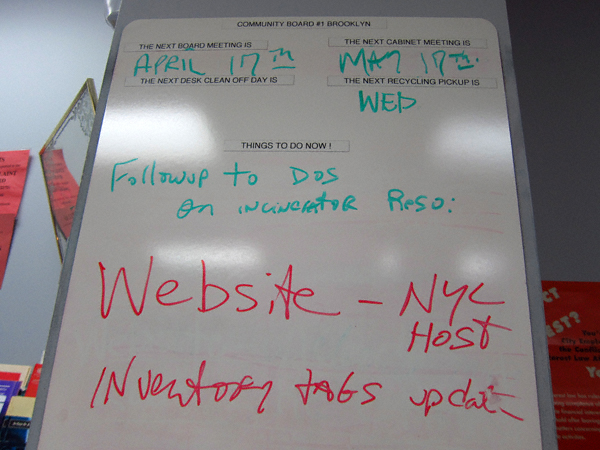 COMMUNITY BOARD #1 BROOKLYN
THE NEXT BOARD MEETING IS
APRIL 17TH
THE NEXT CABINET MEETING IS
MAY 17TH.
THE NEXT DESK CLEAN OFF DAY IS
THE NEXT RECYCLING PICKUP IS
WED
THINGS TO DO NOW !
Followup to DOS
on incinerator Reso:
Website - NYC
HOST
INventory tAGS update